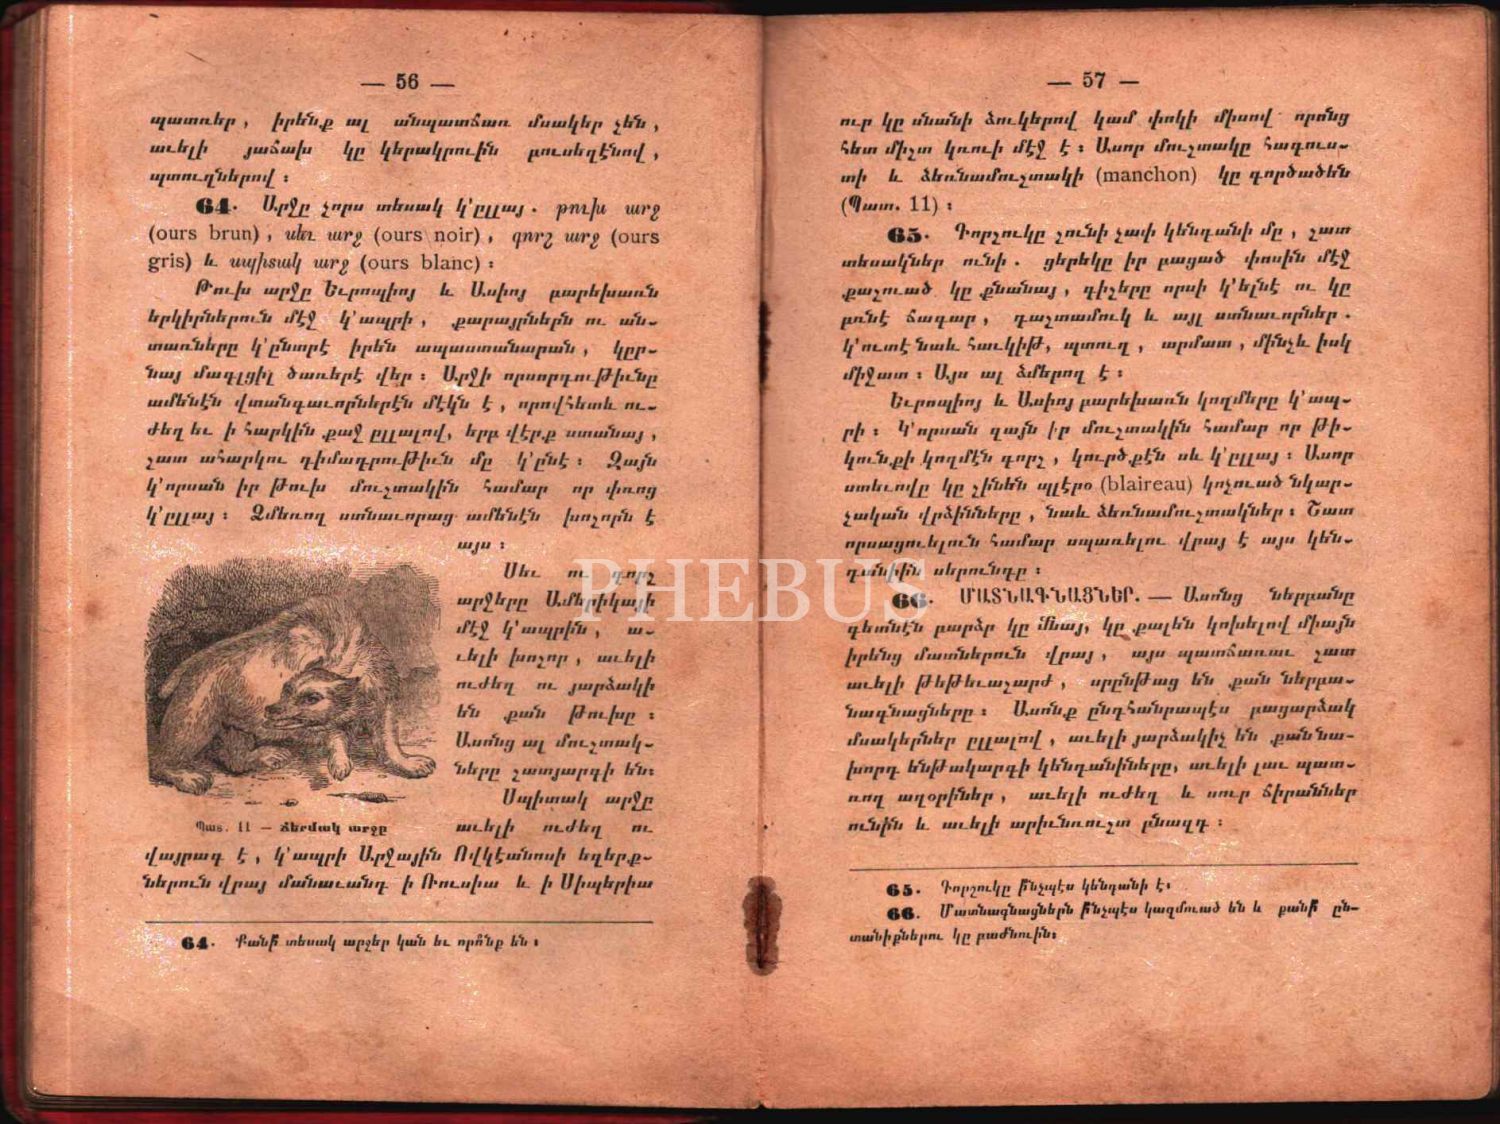 — 56 —
պատռեր, իրենք ալ անպատճառ մսակեր չեն,
աւելի յաճախ կը կերակրուին բուսեղէնով,
պտուղներով :
64. Արջը չորս տեսակ կ՚ըլլայ. թուխ արջ
(ours brun), սեւ արջ (ours noir), գորշ արջ (ours
gris) և սպիտակ արջ (ours blanc) :
Թուխ արջը Եւրոպիոյ և Ասիոյ բարեխառն
երկիրներուն մէջ կ՚ապրի, քարայրներն ու ան-
տառները կ՚ընտրէ իրեն ապաստանարան, կըր-
նայ մագլցիլ ծառերէ վեր : Արջի որսորդութիւնը
ամենէն վտանգաւորներէն մէկն է, որովհետև ու-
ժեղ եւ ի հարկին քաջ ըլլալով, երբ վէրք ստանայ,
շատ ահարկու դիմադրութիւն մը կ՚ընէ : Զայն
կ՚որսան իր թուխ մուշտակին համար որ փռոց
կ՚ըլլայ : Ձմեռող ստնաւորաց ամենէն խոշորն է
այս :
Սեւ ու գորշ
արջերը Ամերիկայի
մէջ կ՚ապրին, ա-
ւելի խոշոր, աւելի
ուժեղ ու յարձակի
են քան թուխը :
Ասոնց ալ մուշտակ-
ները շատ յարգի են:
Սպիտակ արջը
աւելի ուժեղ ու
Պատ. 11 — Ճերմակ արջը
վայրագ է, կ՚ապրի Արջային Ովկէանոսի եզերք-
ներուն վրայ մանաւանդ ի Ռուսիա և ի Սիպերիա
64. Քանի՞ տեսակ արջեր կան եւ որո՞նք են :
— 57 —
ուր կը սնանի ձուկերով կամ փոկի միսով որոնց
հետ միշտ կռուի մէջ է : Ասոր մուշտակը հագուս-
տի և ձեռնամուշտակի (manchon) կը գործածեն
(Պատ. 11) :
65. Գորշուկը չունի չափ կենդանի մը, շատ
տեսակներ ունի. ցերեկը իր բացած փոսին մէջ
քաշուած կը քնանայ, գիշերը որսի կ՚ելնէ ու կը
բռնէ ճագար, դաշտամուկ և այլ ստնաւորներ.
կ՚ուտէ նաև հաւկիթ, պտուղ, արմատ, մինչև իսկ
միջատ : Այս ալ ձմերող է :
Եւրոպիոյ և Ասիոյ բարեխառն կողմերը կ՚ապ-
րի : Կ՚որսան զայն իր մուշտակին համար որ թի-
կունքի կողմէն գորշ, կուրծքէն սև կ՚ըլլայ : Ասոր
ստեւովը կը շինեն պլէրօ (blaireau) կոչուած նկար-
չական վրձինները, նաև ձեռնամուշտակներ : Շատ
որսացուելուն համար սպառելու վրայ է այս կեն-
դանիին սերունդը :
66. ՄԱՏՆԱԳՆԱՑՆԵՐ. — Ասոնց ներբանը
գետնէն բարձր կը մնայ, կը քալեն կոխելով միայն
իրենց մատներուն վրայ, այս պատճառաւ շատ
աւելի թեթեւաշարժ, սրընթաց են քան ներբա-
նագնացները : Ասոնք ընդհանրապէս բացարձակ
մսակերներ ըլլալով, աւելի յարձակիչ են քան նա-
խորդ ենթակարգի կենդանիները, աւելի լաւ պատ-
ռող աղօրիներ, աւելի ուժեղ և սուր ճիրաններ
ունին և աւելի արիւնռուշտ բնազդ :
65. Գորշուկը ի՞նչպէս կենդանի է:
66. Մատնագնացներն ի՞նչպէս կազմուած են և քանի՞ ըն-
տանիքներու կը բաժնուին:
PHEBUS